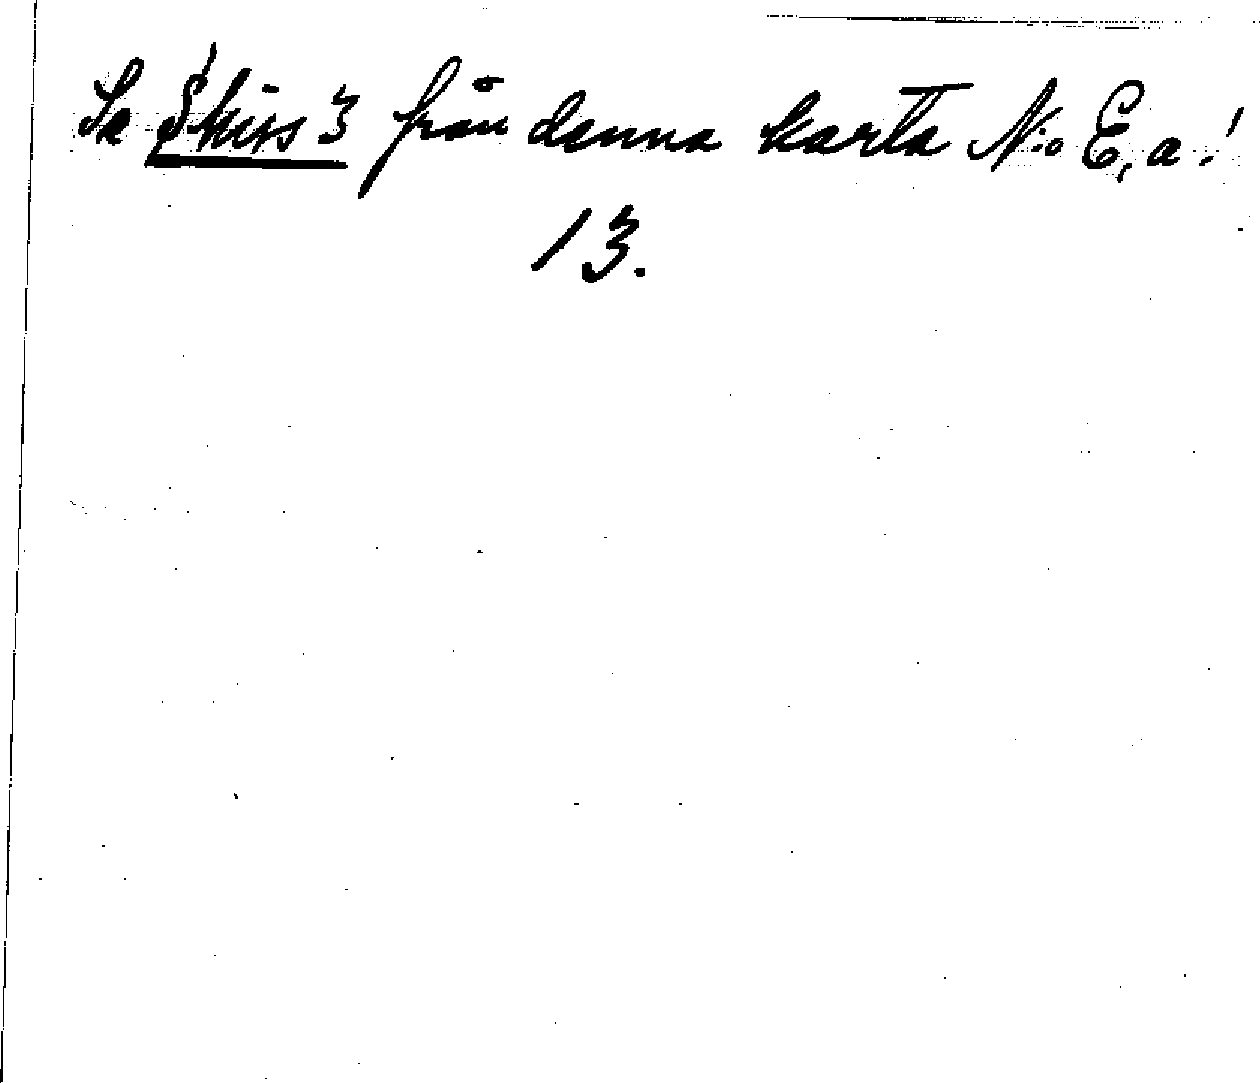 Se Skiss 3 från denna karta N:o E, a!
13.